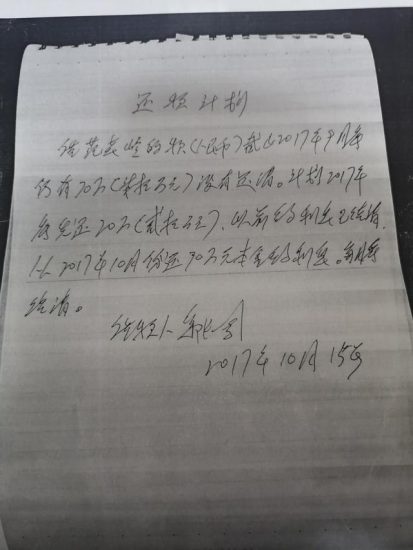 还款计划
借范嘉岭的款(人民币)截止2017年9月底
仍有70万(柒拾万元)没有还清。计划2017年
底先还20万(贰拾万元),以前的利息已结清,
从2017年10月份还70万元本金的利息。每月底
结清。
借款人
2017年10月15日